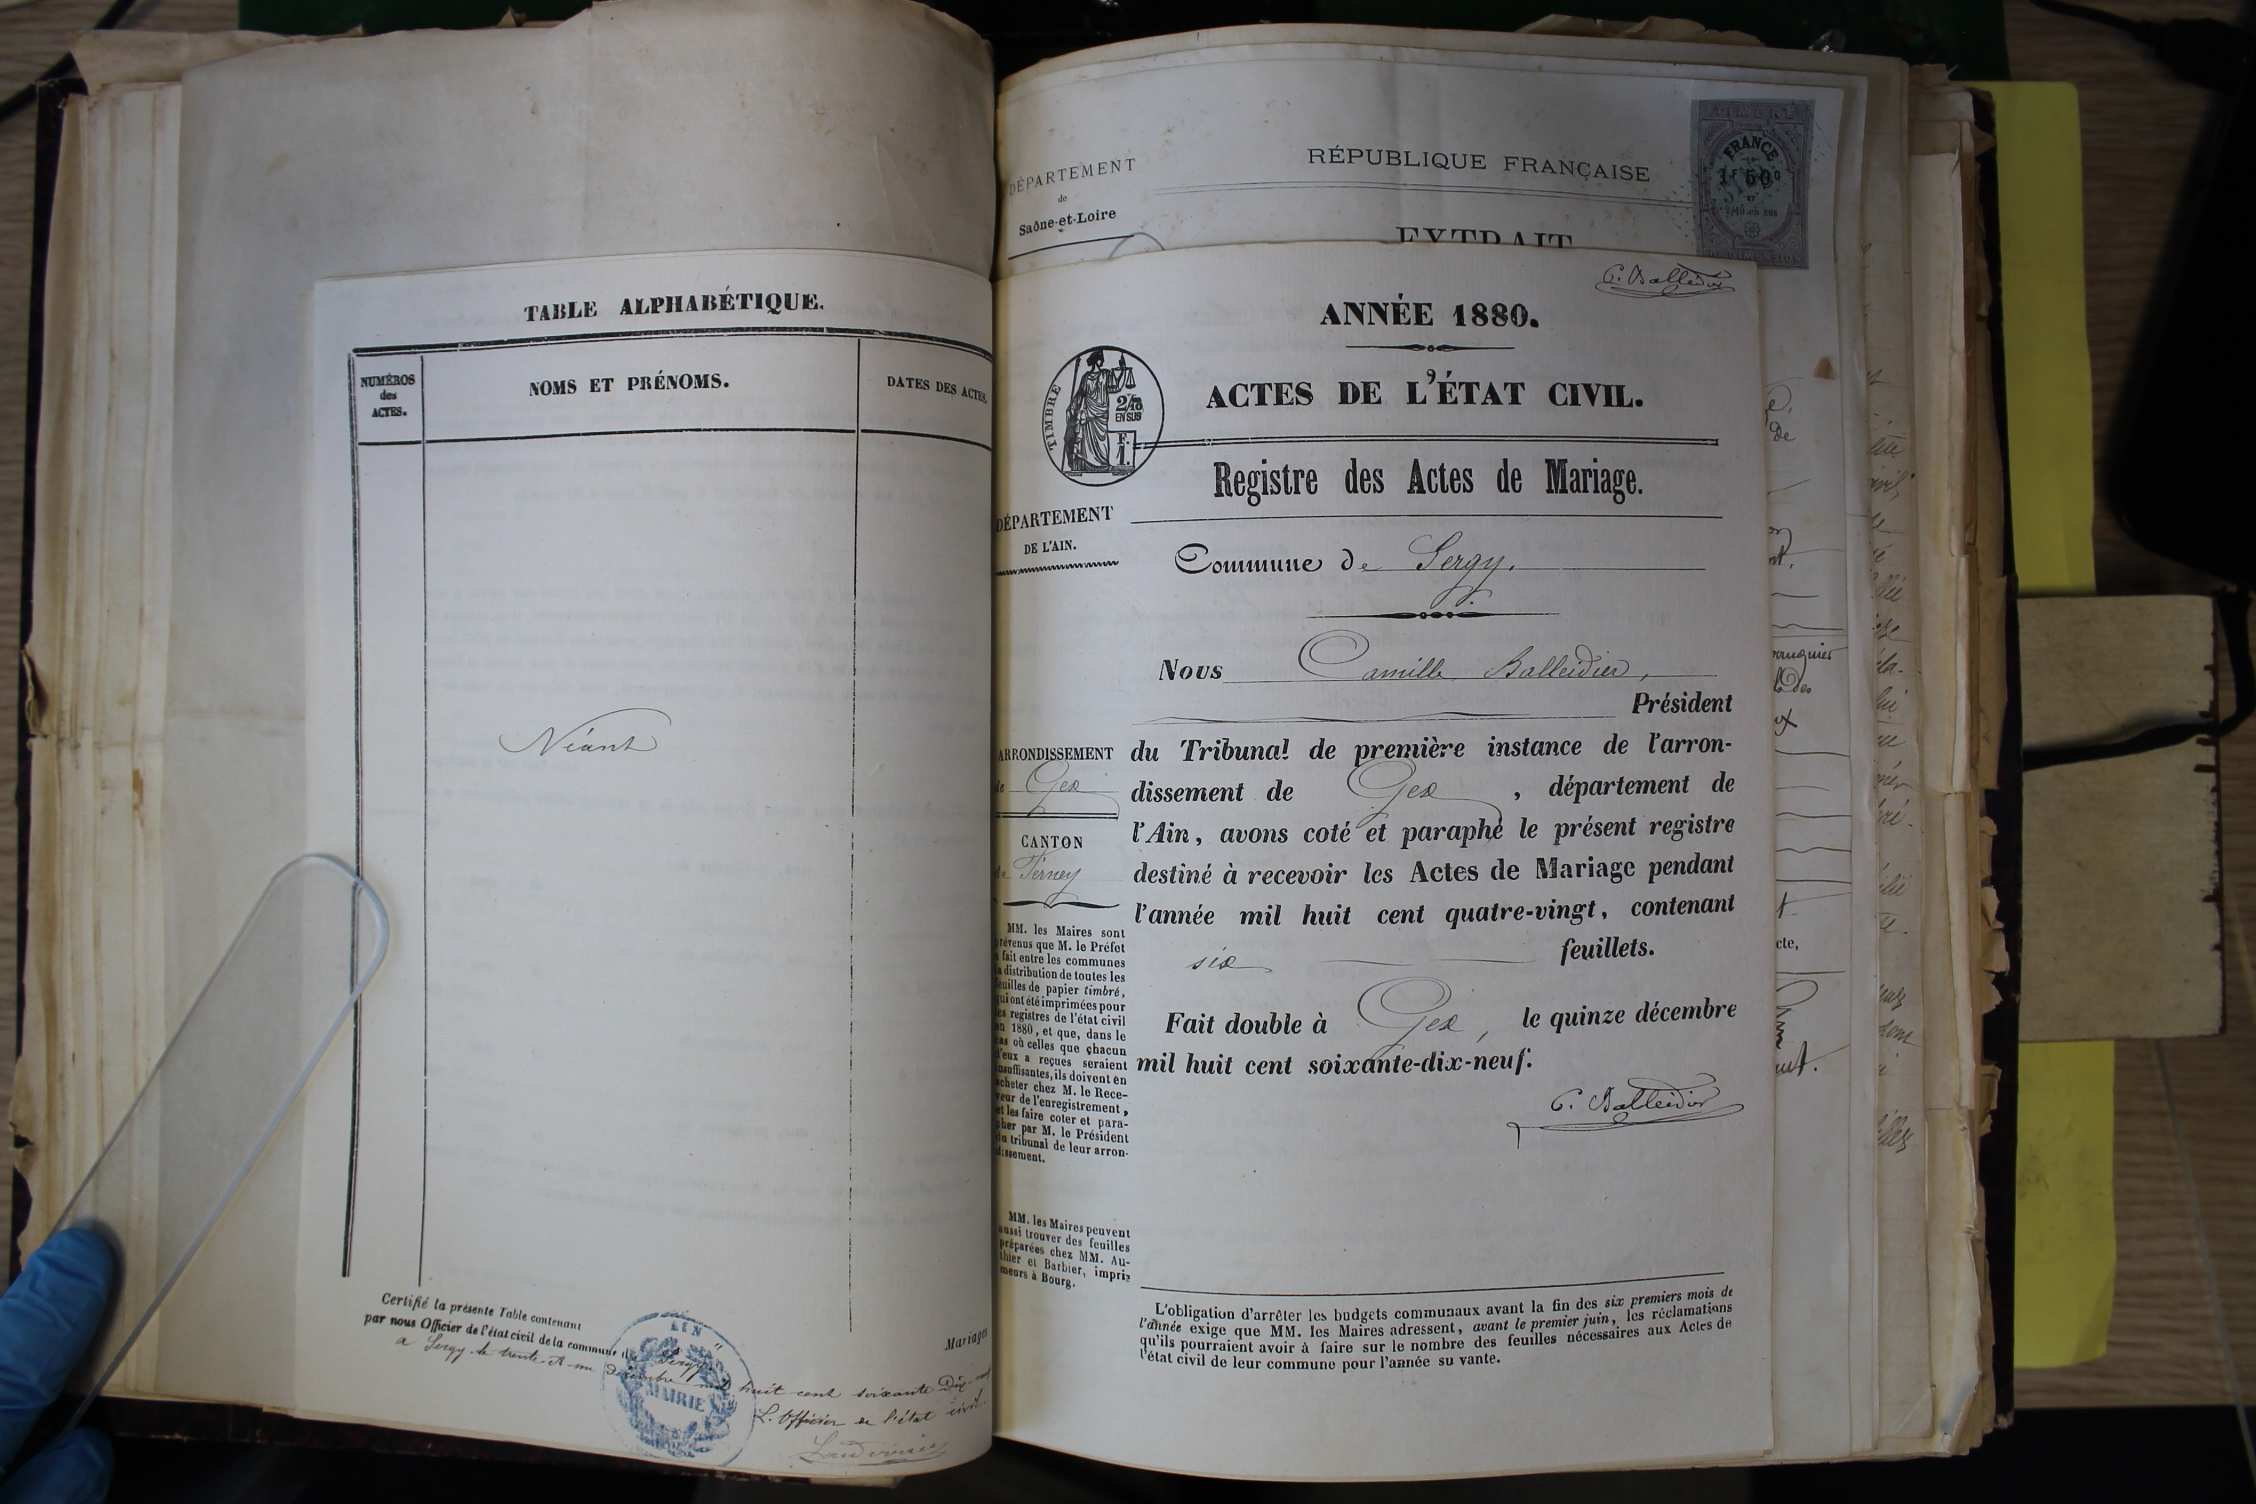 TABLE ALPHABÉTIQUE.
NUMÉROS
des
ACTES.
NOMS ET PRÉNOMS.
DATES DES ACTES.
Néant
Certifié la présente Table contenant
par nous Officier de l'état civil de la commune de Sergy
a Sergy le trente et un décembre mil huit cent soixante Dix neuf
L'officier de l'état civil.
Mariages
AIN
MAIRIE
DÉPARTEMENT
de
Saône-et-Loire
RÉPUBLIQUE FRANÇAISE
EXTRAIT
FRANCE
1F 50c
C. Balleidier
ANNÉE 1880.
ACTES DE L'ÉTAT CIVIL.
TIMBRE
2/10
EN SUS
F.
1.
Registre des Actes de Mariage.
DÉPARTEMENT
DE L'AIN.
Commune de Sergy.
Nous Camille Balleidier,
Président
du Tribunal de première instance de l'arron-
dissement de Gex, département de
l'Ain, avons coté et paraphé le présent registre
destiné à recevoir les Actes de Mariage pendant
l'année mil huit cent quatre-vingt, contenant
six feuillets.
Fait double à Gex, le quinze décembre
mil huit cent soixante-dix-neuf.
C. Balleidier
ARRONDISSEMENT
de Gex
CANTON
de Ferney
MM. les Maires sont
prévenus que M. le Préfet
a fait entre les communes
la distribution de toutes les
feuilles de papier timbré,
qui ont été imprimées pour
les registres de l'état civil
en 1880, et que, dans le
cas où celles que chacun
d'eux a reçues seraient
insuffisantes, ils doivent en
acheter chez M. le Rece-
veur de l'enregistrement,
et les faire coter et para-
pher par M. le Président
du tribunal de leur arron-
dissement.
MM. les Maires peuvent
aussi trouver des feuilles
préparées chez MM. Au-
thier et Barbier, impri-
meurs à Bourg.
L'obligation d'arrêter les budgets communaux avant la fin des six premiers mois de
l'année exige que MM. les Maires adressent, avant le premier juin, les réclamations
qu'ils pourraient avoir à faire sur le nombre des feuilles nécessaires aux Actes de
l'état civil de leur commune pour l'année su vante.